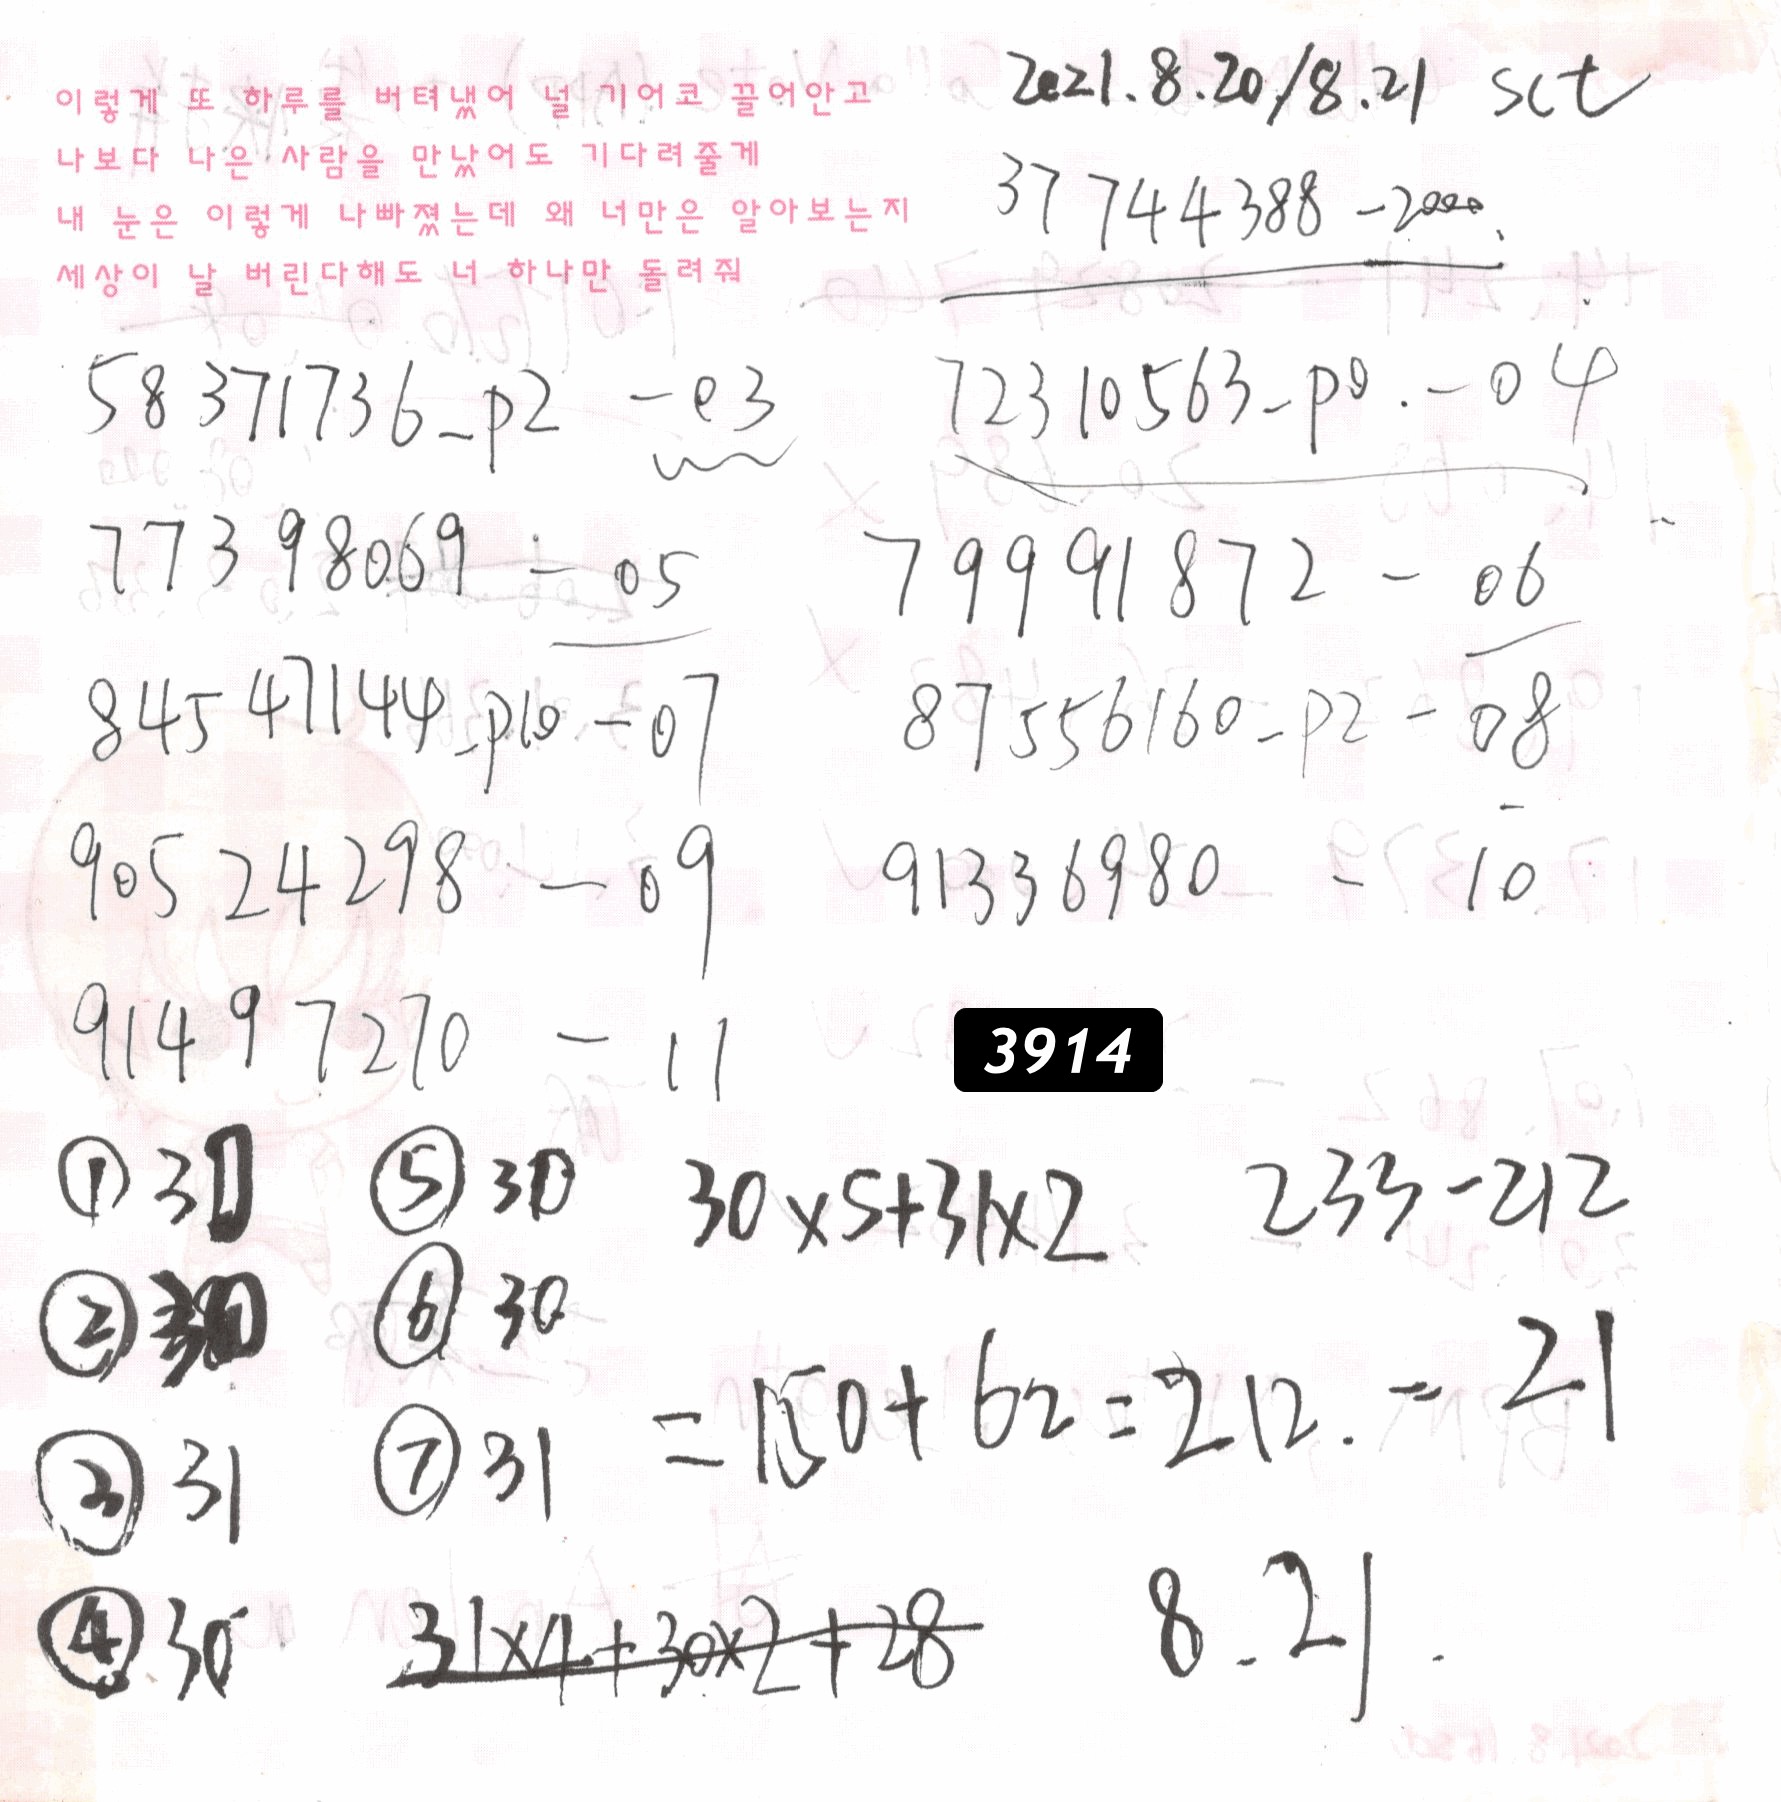 이렇게 또 하루를 버텨냈어 널 기어코 끌어안고
나보다 나은 사람을 만났어도 기다려줄게
내 눈은 이렇게 나빠졌는데 왜 너만은 알아보는지
세상이 날 버린다해도 너 하나만 돌려줘
2021.8.20/8.21 sct
37744388-2000.
58371736_p2 -03
72310563_p0.-04
77398069 - 05
79991872 - 06
84547144_p10 -07
87556160_p2 - 08
90524298 - 09
91336980 - 10
91497270 - 11
3914
① 30 ⑤ 30 30×5+31×2 233-212
② ⑥ 30
=150+62=212. = 21
③ 31 ⑦ 31
④ 30 31×4+30×2+28 8.21.